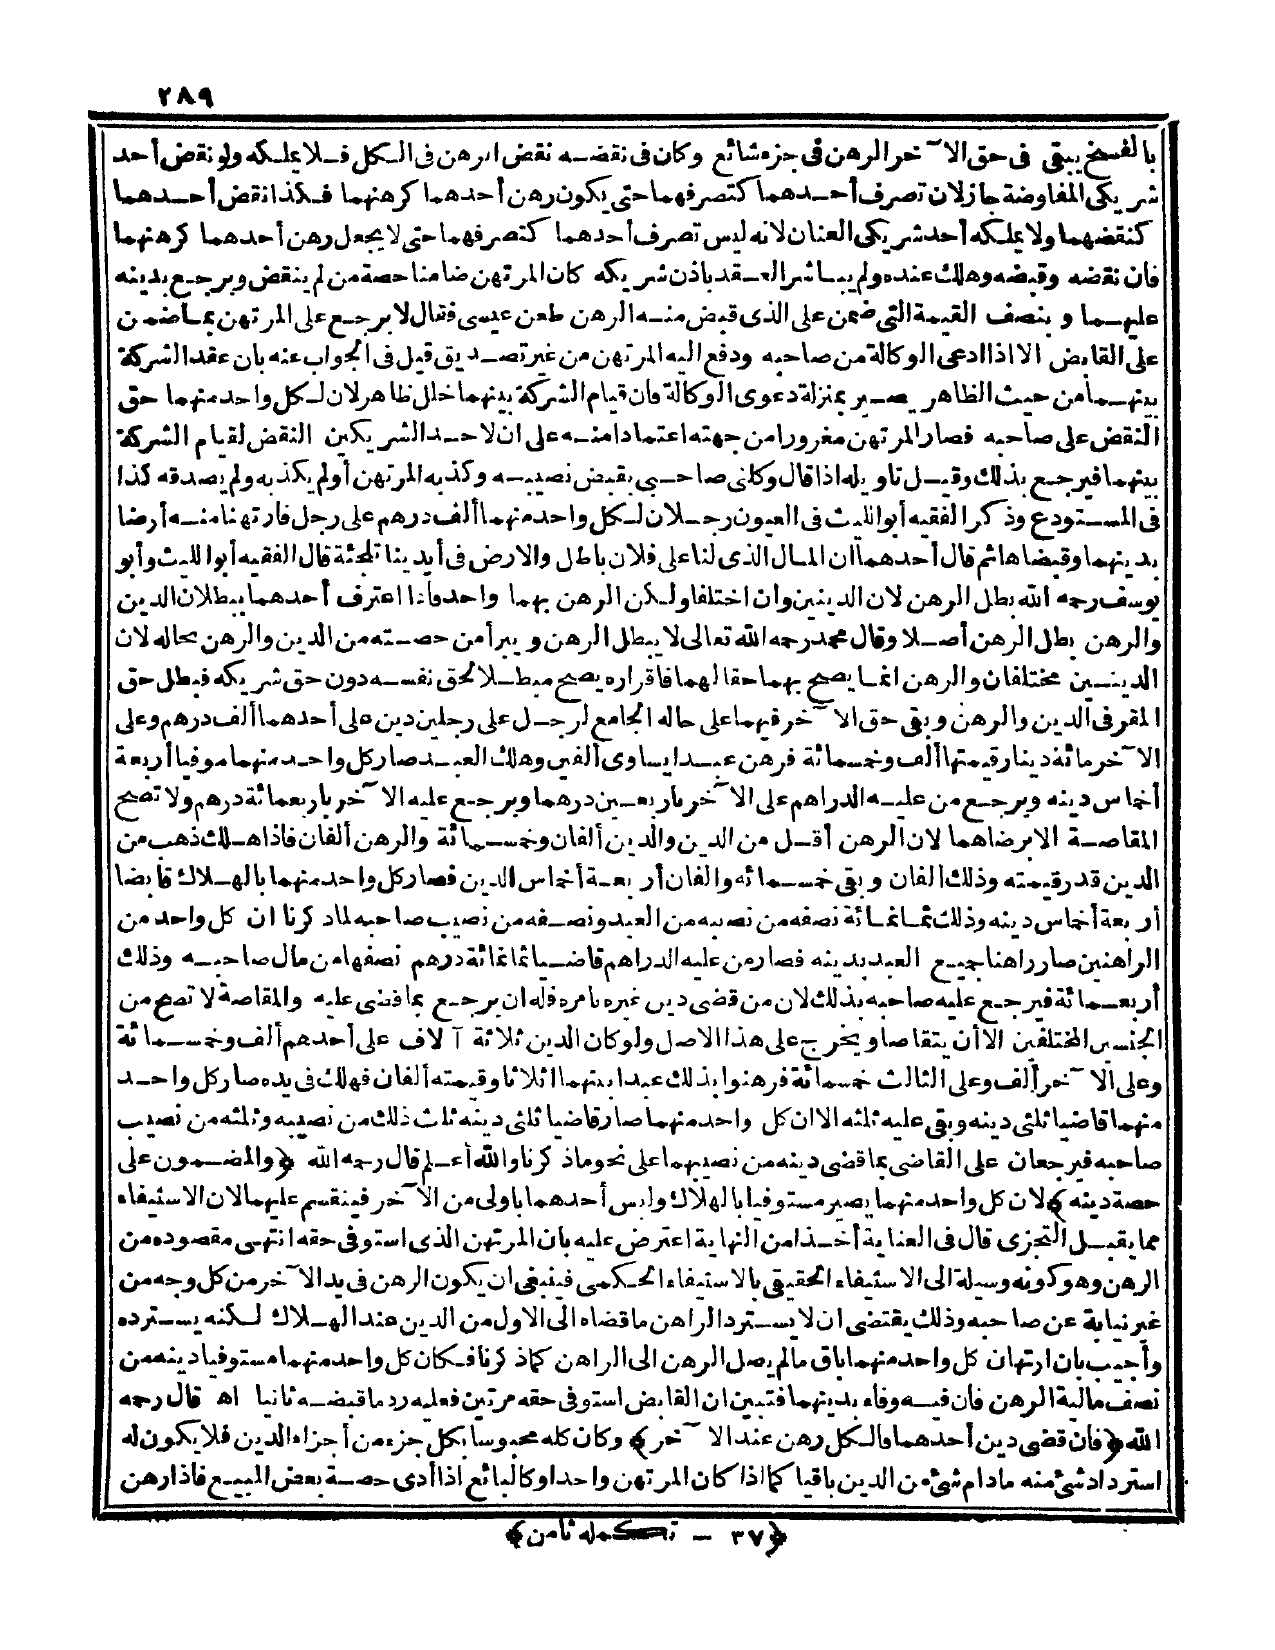 ٢٨٩
بالفسخ يبقى فى حق الآخر الرهن فى جزء شائع وكان فى نقضه نقض الرهن فى الكل فلا يملكه ولو نقض أحد
شريكى المفاوضة جاز لان تصرف أحدهما كتصرفهما حتى يكون رهن أحدهما كرهنهما فكذا نقض أحدهما
كنقضهما ولا يملكه أحد شريكى العنان لانه ليس تصرف أحدهما كتصرفهما حتى لا يجعل رهن أحدهما كرهنهما
فان نقضه وقبضه وهلك عنده ولم يباشر العقد باذن شريكه كان المرتهن ضامنا حصة من لم ينقض ويرجع بدينه
عليهما و بنصف القيمة التى ضمن على الذى قبض منه الرهن طعن عيسى فقال لا يرجع على المرتهن بما ضمن
على القابض الا اذا ادعى الوكالة من صاحبه ودفع اليه المرتهن من غير تصديق قيل فى الجواب عنه بان عقد الشركة
بينهما من حيث الظاهر يصير بمنزلة دعوى الوكالة فان قيام الشركة بينهما خال ظاهر لان لكل واحد منهما حق
النقض على صاحبه فصار المرتهن مغرورا من جهته اعتمادا منه على ان لاحد الشريكين النقض لقيام الشركة
بينهما فيرجع بذلك وقيل تاويله اذا قال وكلنى صاحبى بقبض نصيبه وكذبه المرتهن أو لم يكذبه ولم يصدقه كذا
فى المستودع وذكر الفقيه أبو الليث فى العيون رجلان لكل واحد منهما ألف درهم على رجل فارتهنا منه أرضا
بدينهما وقبضاها ثم قال أحدهما ان المال الذى لنا على فلان باطل والارض فى أيدينا تلجئة قال الفقيه أبو الليث وأبو
يوسف رحمه الله بطل الرهن لان الدينين وان اختلفا ولكن الرهن بهما واحد فاذا اعترف أحدهما ببطلان الدين
والرهن بطل الرهن أصلا وقال محمد رحمه الله تعالى لا يبطل الرهن و يبرأ من حصته من الدين والرهن بحاله لان
الدينين مختلفان والرهن انما يصح بهما حقا لهما فاقراره يصح مبطلا لحق نفسه دون حق شريكه فبطل حق
المقر فى الدين والرهن و بقى حق الآخر فيهما على حاله الجامع لرجل على رجلين دين على أحدهما ألف درهم وعلى
الآخر مائة دينار قيمتها ألف وخمسمائة فرهن عبدا يساوى ألفين وهلك العبد صار كل واحد منهما موفيا أربعة
أخماس دينه ويرجع من عليه الدراهم على الآخر باربعين درهما ويرجع عليه الآخر باربعمائة درهم ولا تصح
المقاصة الا برضاهما لان الرهن أقل من الدين والدين ألفان وخمسمائة والرهن ألفان فاذا هلك ذهب من
الدين قدر قيمته وذلك الفان و بقى خمسمائه والفان أربعة أخماس الدين فصار كل واحد منهما بالهلاك قابضا
أربعة أخماس دينه وذلك ثمانمائة نصفه من نصيبه من العبد ونصفه من نصيب صاحبه لما ذكرنا ان كل واحد من
الراهنين صار راهنا جميع العبد بدينه فصار من عليه الدراهم قاضيا ثمانمائة درهم نصفها من مال صاحبه وذلك
أربعمائة فيرجع عليه صاحبه بذلك لان من قضى دين غيره بامره فله ان يرجع بما قضى عليه والمقاصة لا تصح من
الجنسين المختلفين الا أن يتقاصا و يخرج على هذا الاصل ولو كان الدين ثلاثة آلاف على أحدهم ألف وخمسمائة
وعلى الآخر ألف وعلى الثالث خمسمائة فرهنوا بذلك عبدا بينهم اثلاثا وقيمته ألفان فهلك فى يده صار كل واحد
منهما قاضيا ثلثى دينه وبقى عليه ثلثه الا ان كل واحد منهما صار قاضيا ثلثى دينه ثلث ذلك من نصيبه وثلثه من نصيب
صاحبه فيرجعان على القاضى بما قضى دينه من نصيبهما على نحو ما ذكرنا والله أعلم قال رحمه الله ﴿والمضمون على
حصة دينه﴾ لان كل واحد منهما يصير مستوفيا بالهلاك وليس أحدهما باولى من الآخر فينقسم عليهما لان الاستيفاء
مما يقبل التجزى قال فى العناية أخذا من النهاية اعترض عليه بان المرتهن الذى استوفى حقه انتهى مقصوده من
الرهن وهو كونه وسيلة الى الاستيفاء الحقيقى بالاستيفاء الحكمى فينبغى ان يكون الرهن فى يد الآخر من كل وجه من
غير نيابة عن صاحبه وذلك يقتضى ان لا يسترد الراهن ما قضاه الى الاول من الدين عند الهلاك لكنه يسترده
وأجيب بان ارتهان كل واحد منهما باق ما لم يصل الرهن الى الراهن كما ذكرنا فكان كل واحد منهما مستوفيا دينه من
نصف مالية الرهن فان فيه وفاء بدينهما فتبين ان القابض استوفى حقه مرتين فعليه رد ما قبضه ثانيا اه قال رحمه
الله ﴿فان قضى دين أحدهما فالكل رهن عند الآخر﴾ وكان كله محبوسا بكل جزء من أجزاء الدين فلا يكون له
استرداد شئ منه ما دام شئ من الدين باقيا كما اذا كان المرتهن واحدا وكالبائع اذا أدى حصة بعض المبيع فاذا رهن
﴿٣٧ - تكمله ثامن﴾